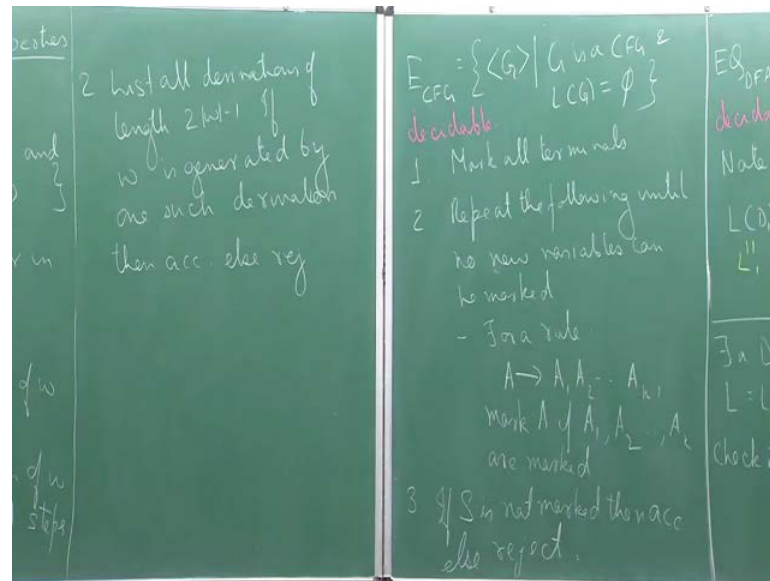 perties
and
}
r in
of w
n of w
steps
2 List all derivations of
length 2|w|-1 If
w is generated by
one such derivation
then acc. else rej
E_CFG = {<G> | G is a CFG &
L(G) = ϕ}
decidable
1 Mark all terminals
2 Repeat the following until
no new variables can
be marked
- For a rule
A → A₁A₂ ... Aₖ,
mark A if A₁, A₂ ..., Aₖ
are marked
3 If S is not marked then acc
else reject.
EQ_DFA
decida
Note
L(D₁
L₁
∃ a D
L = L
Check i